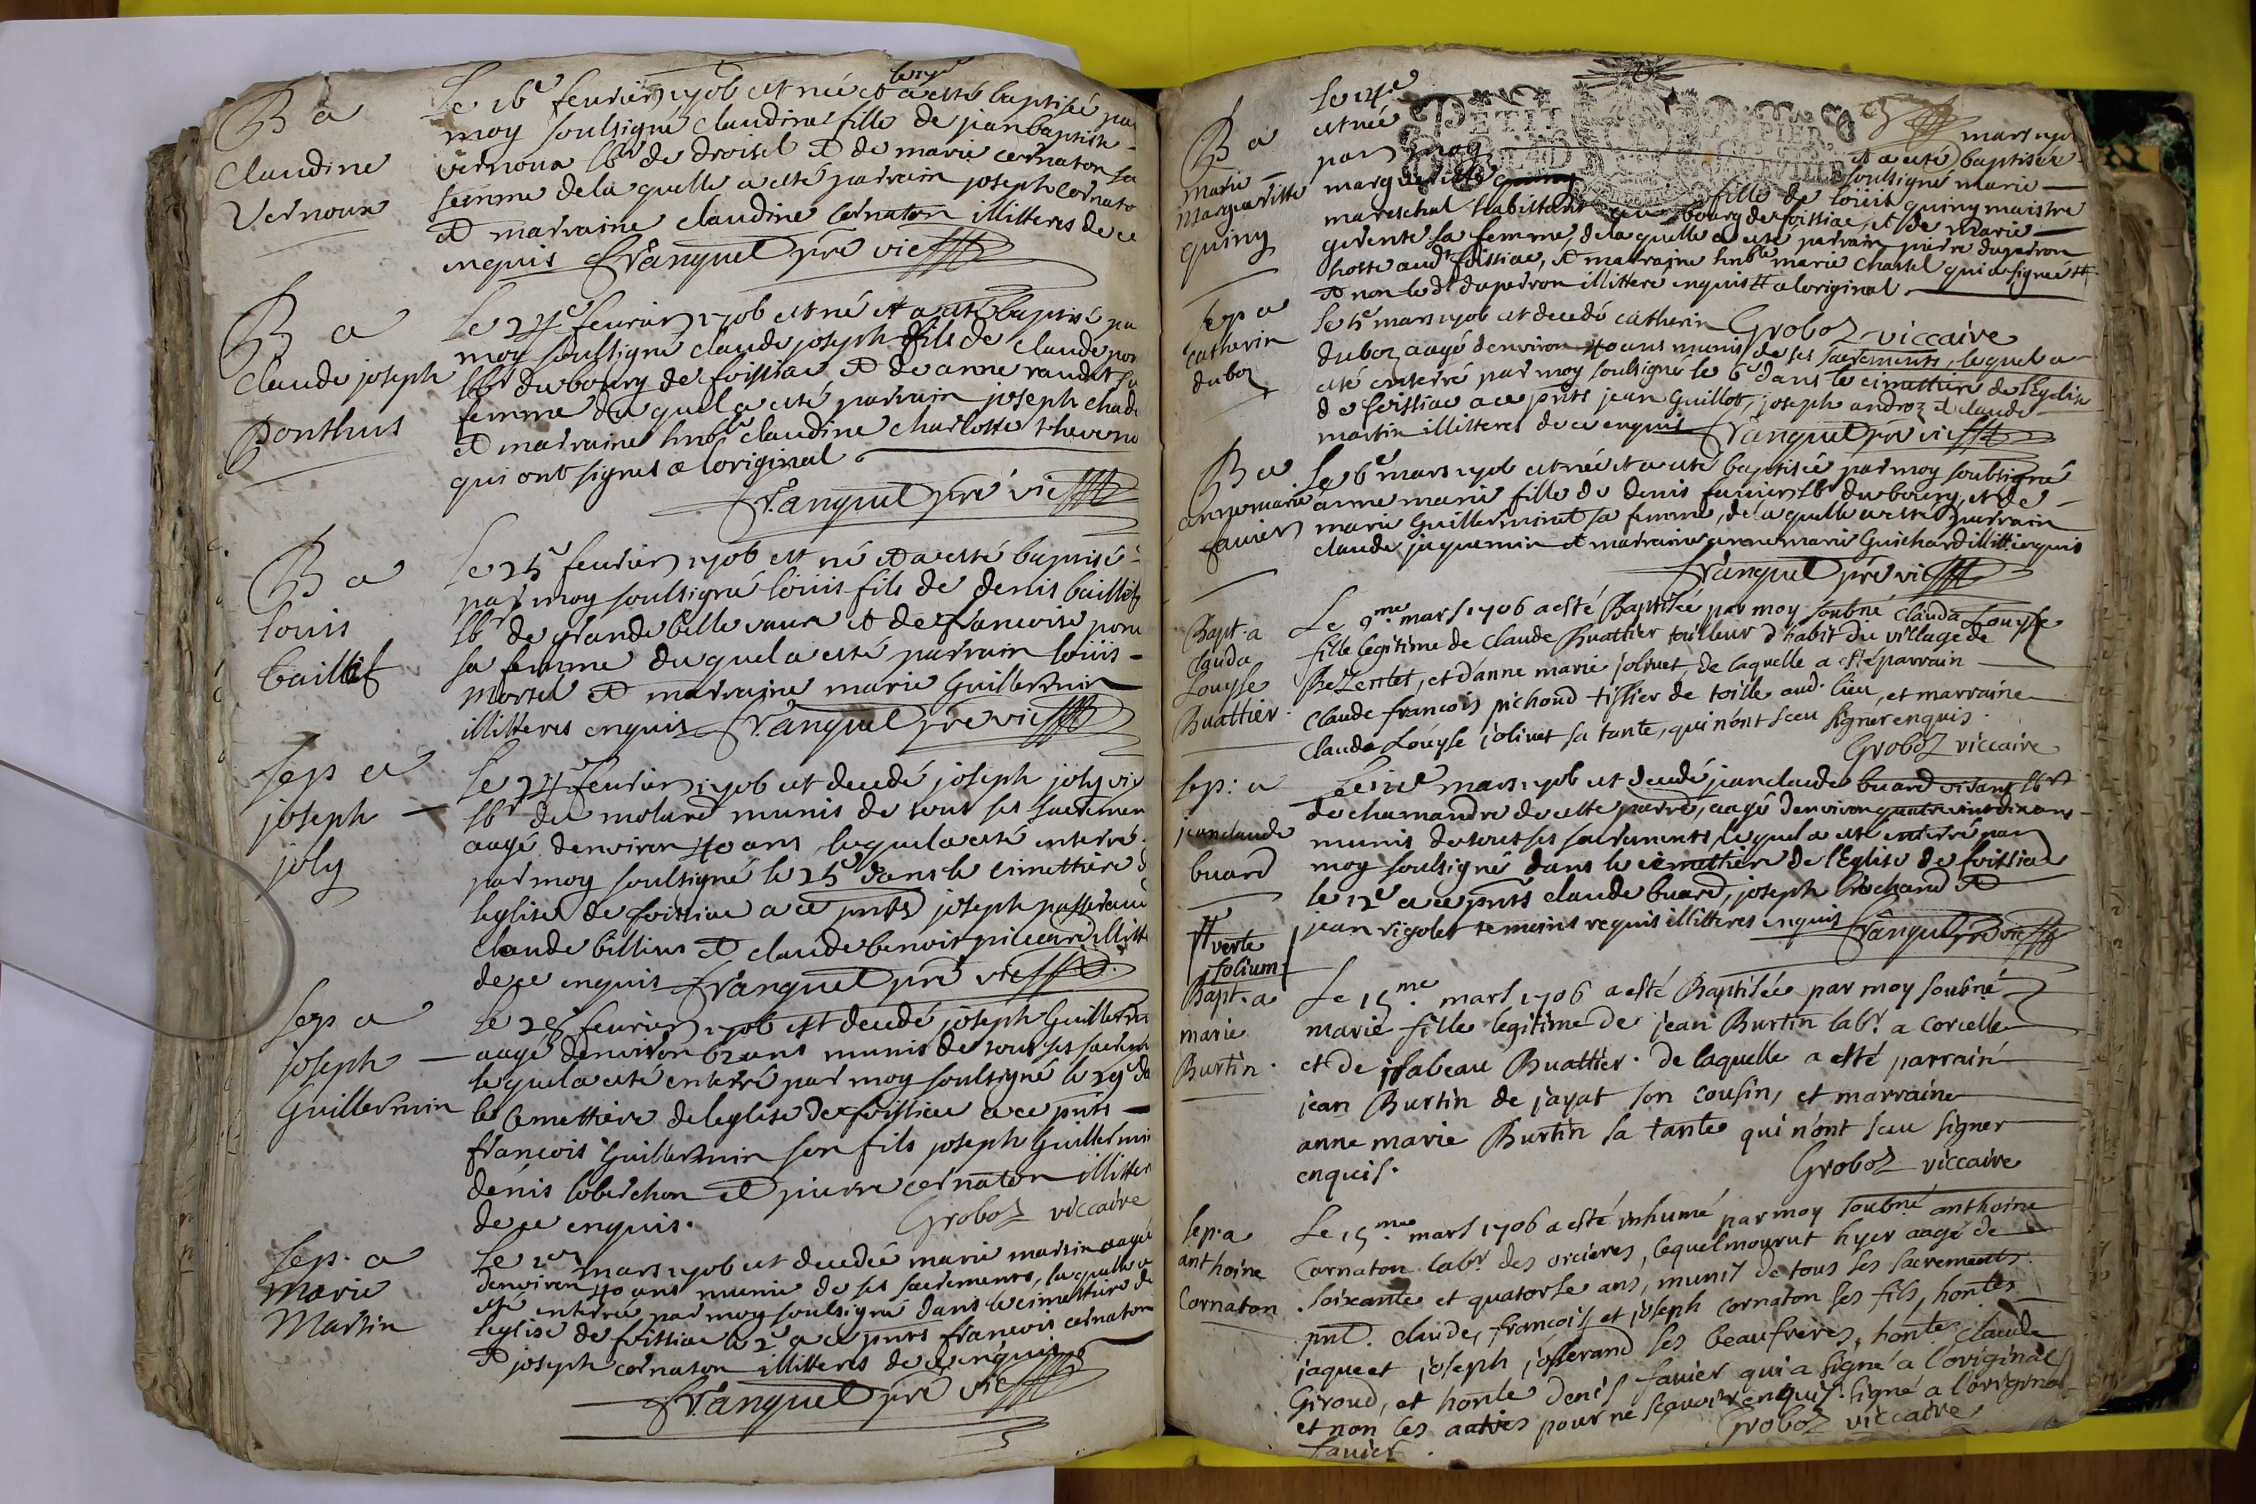 B a
Claudine
Vernoux
Le 16e feurier 1706 est née et a esté baptisé par
le 17e
moy soulsigné claudine fille de jean baptiste
vernoux lbr de droisel et de marie cernaton sa
femme de la quelle a esté parrain joseph Cornato
et marraine claudine Cernaton illitteres de ce
inquis franquel pre vic
B a
Claude joseph
Ponthus
Le 24e feurier 1706 est né et a esté baptisé pa
moy soulsigné claude joseph fils de claude pon
lbr du bourg de foissiac et de anne randet sa
femme du quel a esté parrain joseph chad
et marraine hnble claudine charlotte theveno
qui ont signés a loriginal
franquel pre vic
B a
louis
baillet
Le 25e feurier 1706 est né et a esté baptisé
par moy soulsigné louis fils de denis baillet
lbr de grande belle vaur et de francoise pom
sa femme du quel a esté parrain louis
morel et marraine marie Guillermin
illitteres enquis franquel pre vic
Sep a
joseph
joly
Le 24e feurier 1706 est decedé joseph joly viv
lbr du molard munis de tous ses sacremen
aagé denviron 40 ans lequel a esté enterré
par moy soulsigné le 25e dans le cimettiere d
leglise de foissiac a ce pnts joseph passerand
claude billiens et claude benoit pileard illitt
de ce enquis franquel pre vic
Sep a
joseph
Guillermin
Le 28e feurier 1706 est decedé joseph Guillerm
aagé denviron 62 ans munis de tous ses sacrem
lequel a esté enterré par moy soulsigné le 29e da
le Cemettiere de leglise de foissiac a ce pnts
francois Guillermin son fils joseph Guillermi
denis loberchon et pierre cernaton illitter
de ce enquis.
Groboz viccaire
Sep. a
Marie
Martin
Le 1er mars 1706 est decedée marie martin aagée
denviron 40 ans munie de ses sacrements, laquelle a
esté enterrée par moy soulsigné dans le cimettiere de
leglise de foissiac le 2e a ce pnts francois cernaton
et joseph cernaton illitteres de ce enquis
franquel pre vic
B a
marie
Margueritte
quiny
Le 14e mars 1706
est née et a esté baptisée
par moy soulsigné marie
margueritte quiny fille de louis quiny maistre
mareschal habittant au bourg de foissiac, et de marie
gerente sa femme, de la quelle a esté parrain pierre duperron
hoste aud foissiac, et marraine hnble marie Chastel qui a signé
et non led duperron illitteré enquis a loriginal.
Groboz viccaire
PETIT PAPIER
Sep a
Catherin
duboz
Le 5e mars 1706 est decedé catherin
duboz aagé denviron 40 ans munis de ses sacrements, lequel a
esté enterré par moy soulsigné le 6e dans le cimettiere de leglise
de foissiac a ce pnts jean Guillot, joseph androz et claude
martin illitteres de ce enquis franquel pre vic
B a
anne marie
favier
Le 6e mars 1706 est née et a esté baptisée par moy soulsigné
anne marie fille de denis favier lbr du bourg, et de
marie Guillerminet sa femme, de la quelle a esté parrain
claude jaquemin et marraine anne marie Guichard illitt. enquis
franquel pre vic
Bapt. a
Clauda
Louyse
Buattier.
Le 9me. mars 1706 a esté Baptisée par moy soubné Clauda Louyse
fille legitime de Claude Buattier tailleur d'habit du village de
Bezentet, et d'anne marie jolivet, de laquelle a esté parrain
Claude francois pichond tissier de toille aud. lieu, et marraine
Clauda Louyse jolivet sa tante, qui n'ont sceu signer enquis.
Groboz viccaire
Sep: a
jean claude
buard
Le 11e mars 1706 est decedé jean claude buard vivant lbr
de chamandre de cette parre, aagé denviron quatre vint dix ans
munis de tout ses sacrements, lequel a esté enterré par
moy soulsigné dans le cimettiere de l'Eglise de foissiac
le 12e a ce pnts claude buard, joseph brochand et
jean rigolet temoins requis illitteres enquis franquel pre vic
verte
folium
Bapt. a
marie
Burtin.
Le 15me. mars 1706 a esté Baptisée par moy soubné
marie fille legitime de jean Burtin labr. a Corcelle
et de isabeau Buattier. de laquelle a esté parrain
jean Burtin de jayat son cousin, et marraine
anne marie Burtin sa tante qui n'ont sceu signer
enquis.
Groboz viccaire
Sep. a
anthoine
Cornaton
Le 15me. mars 1706 a esté inhumé par moy soubné anthoine
Cornaton labr. des orcieres, lequel mourut hyer aagé de
soixante et quatorse ans, muniz de tous ses sacrements.
pnt. claude, francois et joseph cornaton ses fils, hontes
jaque et joseph josserand ses beaufreres, honte. Claude
Giroud, et honte denis favier qui a signé a l'original,
et non les autres pour ne scavoir enquis. signé a l'original
favier.
Groboz viccaire